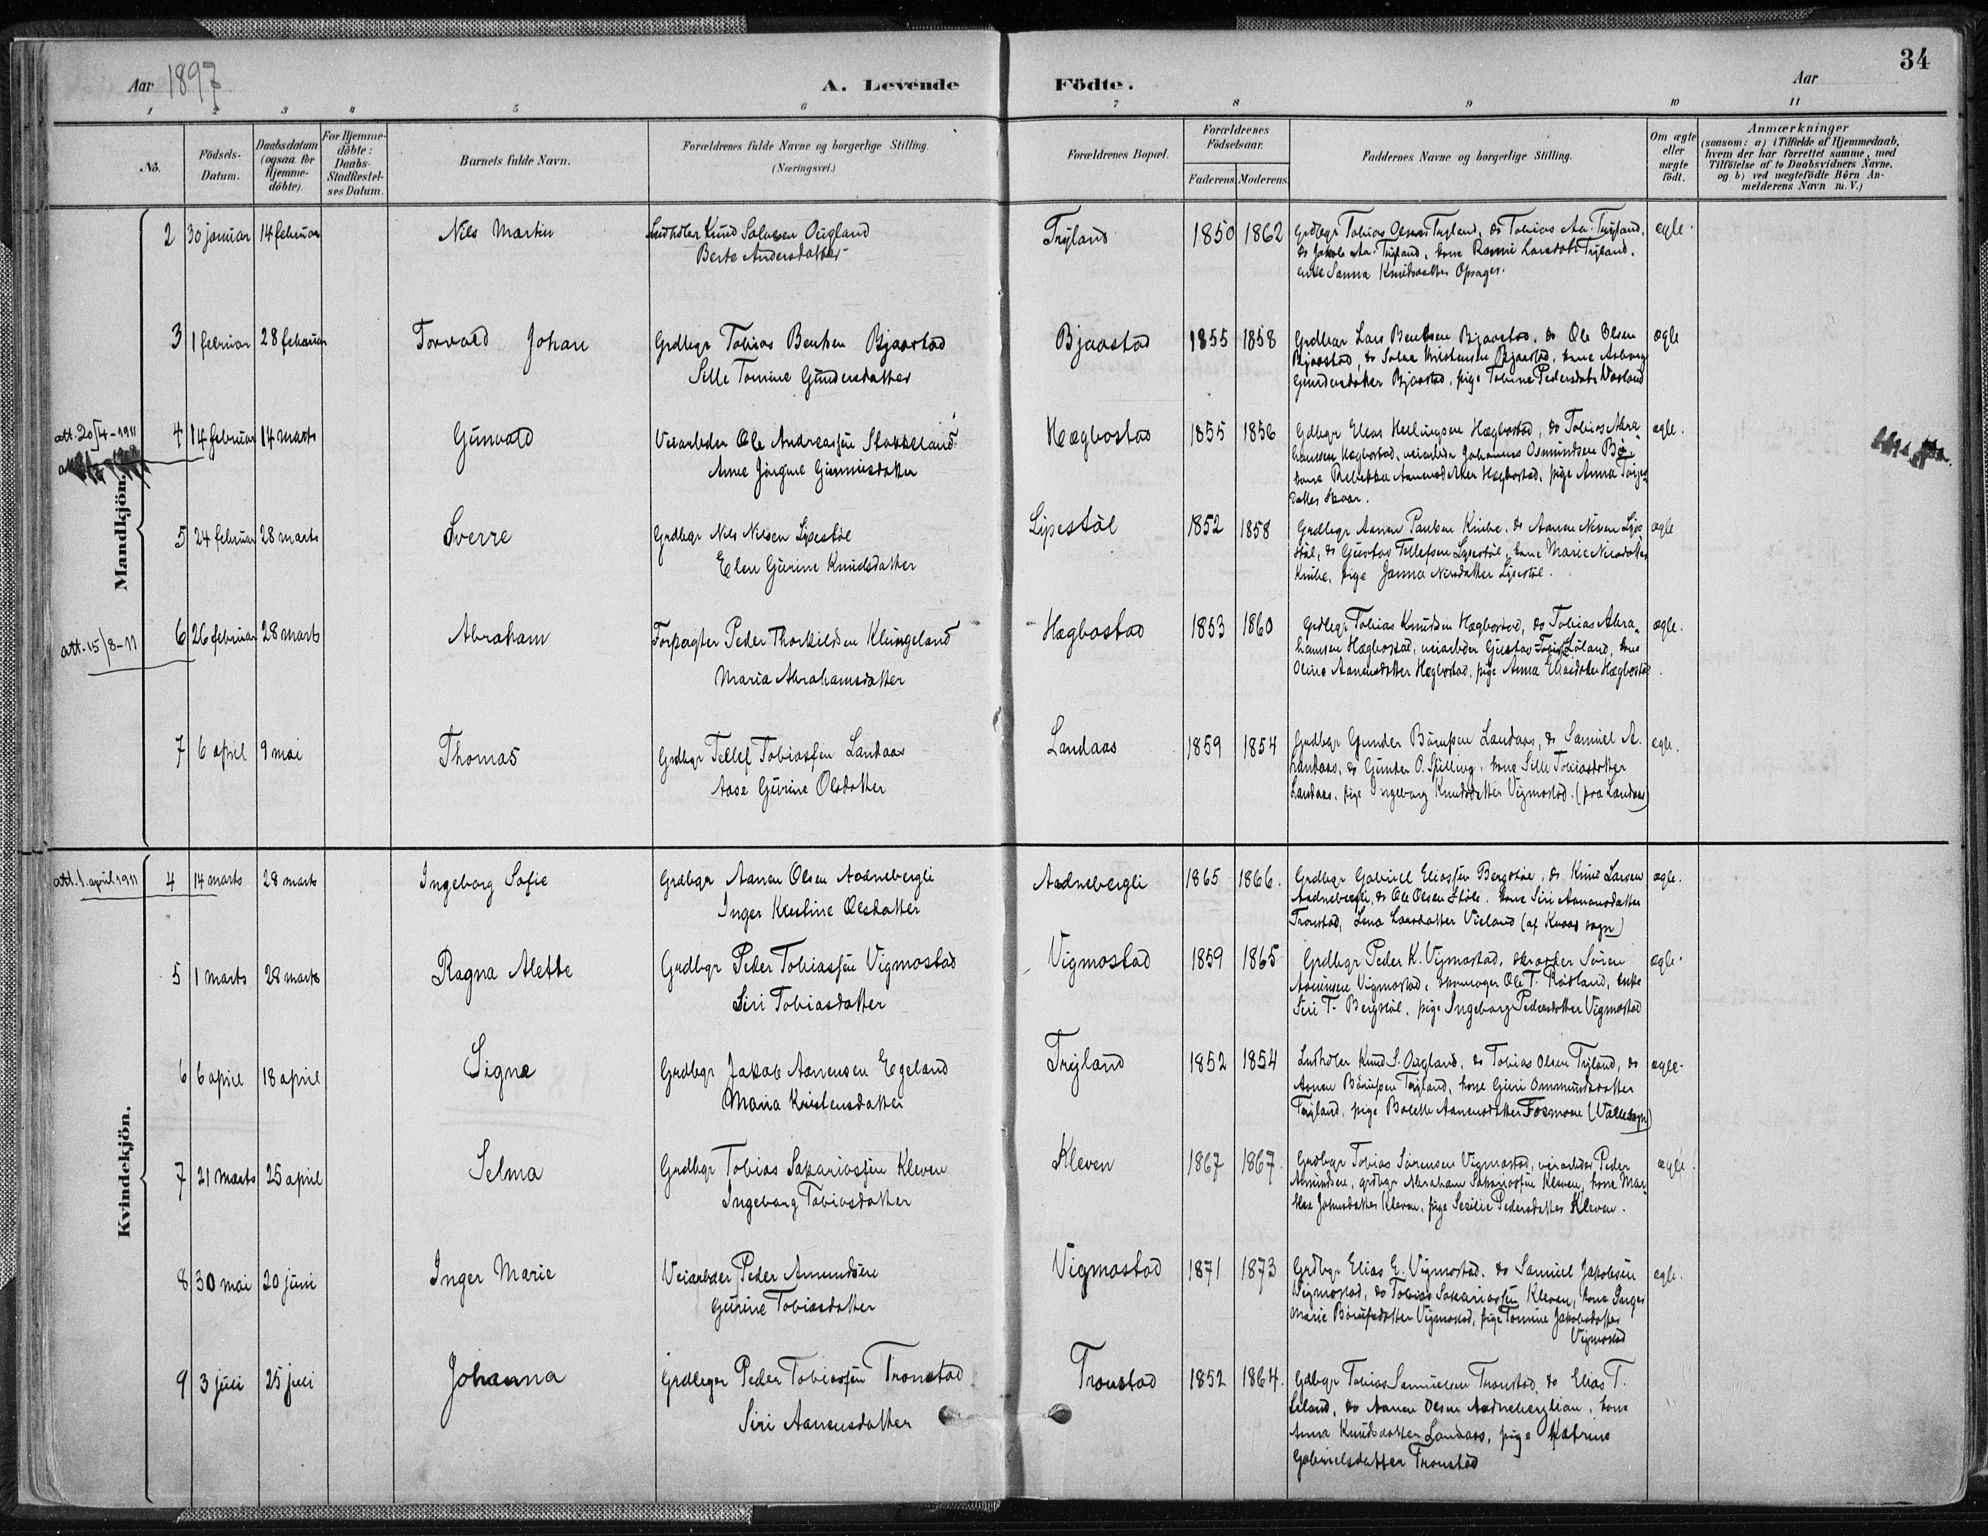 34
Aar 1897
A. Levende Födte.
Aar
1 2 3 4 5 6 7 8 9 10 11
No.
Födsels-Datum.
Daabsdatum (ogsaa for Hjemme-döbte).
For Hjemme-döbte: Daabs-Stadfestel-ses Datum.
Barnets fulde Navn.
Forældrenes fulde Navne og borgerlige Stilling.
(Næringsvei.)
Forældrenes Bopæl.
Forældrenes Födselsaar.
Faderens. Moderens.
Faddernes Navne og borgerlige Stilling.
Om ægte eller uægte födt.
Anmærkninger
(saasom: a) i Tilfælde af Hjemmedaab,
hvem der har forrettet samme, med
Tilföielse af to Daabsvidners Navne,
og b) ved uægtefödte Börn An-
melderens Navn m. V.)
Mandkjön.
2 30 januar 14 februar Nils Martin Knud Salvesen Ougland Tryland 1850 1862 Grdbgr Tobias Olsen Tryland, do Tobias Aa. Tryland, ægte.
Berte Andersdatter do Jakob Aa. Tryland, kone Larsdatter Tryland,
Sanna Knudsdatter Opsager.
3 1 februar 28 februar Torvald Johan Grdbgr Tobias Bentsen Bjaastad Bjaastad 1855 1858 Grdbgr Lars Bentsen Bjaastad, do Ole Olsen ægte
Sille Tomine Gundersdatter Bjaastad, do Salve Kristensen Bjaastad, kone Asborg
Gundersdatter Bjaastad, pige Tobine Pedersdatr
att. 20/4-1911 4 14 februar 14 marts Gunvald Veiarbder Ole Andreassen Stokkeland Hægbostad 1855 1856 Gdbgr Elias Hægbostad, do Tobias Abra- ægte.
Anne Jörgine Gunnusdatter hamsen Hægbostad, veiarbder Johannes Osmundsen
kone Rebekka Aanensdatter Hægbostad, pige Anna
datter
5 24 februar 28 marts Sverre Grdbgr Nils Nilsen Lipestöl Lipestöl 1852 1858 Grdbgr Aanen Paulsen Knibe, do Aanen Nilsen ægte
Elen Gurine Knudsdatter do Gustav Tellefsen kone Marie Nilsdatter
Knibe, pige Janna Nilsdatter Lipestöl.
att. 15/8-11 6 26 februar 28 marts Abraham Forpagter Peder Thorkildsen Klungeland Hægbostad 1853 1860 Grdbgr Tobias Knudsen Hægbostad, do Tobias Abra- ægte.
Maria Abrahamsdatter hamsen Hægbostad, veiarbder Gustav Löland, kone
Oline Aanensdatter Hægbostad, pige Anna Eliasdatter Hægbostad.
7 6 april 9 mai Thomas Grdbgr Tellef Tobiassen Landaas Landaas 1859 1854 Grdbgr Gunder Landaas, do Samuel A. ægte.
Aase Gurine Olsdatter Landaas, do Gunder O. Spilling, kone Sille Tobiasdatter
Landaas, pige Ingeborg Knudsdatter Vigmostad. (paa Landaas)
Kvindekjön.
att. 1. april 1911 4 14 marts 28 marts Ingeborg Sofie Grdbgr Aanen Olsen Aadnebergli Aadnebergli 1865 1866. Grdbgr Gabriel Eliassen Bergstöl, do Knud Larsen ægte.
Inger Kristine Olsdatter Aadnebergli, do Ole Olsen kone Siri Aanensdatter
Tronstad, Lena Larsdatter Vieland (af sogn)
5 1 marts 28 marts Ragna Alette Grdbgr Peder Tobiassen Vigmostad Vigmostad 1859 1865 Grdbgr Peder K. Vigmostad, Sören ægte.
Siri Tobiasdatter Vigmostad, Ole T. Rödland, enke
Siri T. Bergstöl, pige Ingeborg Pedersdatter Vigmostad
6 6 april 18 april Signe Grdbgr Jakob Aanensen Egeland Tryland 1852 1854 Knud S. Ougland, do Tobias Olsen Tryland, do ægte.
Maria Kristensdatter Aanen Tryland, kone Guri Ommundsdatter
Tryland, pige Bolette Aanensdatter Fosmone (Valle sogn)
7 21 marts 25 april Selma Grdbgr Tobias Sakariassen Kleven Kleven 1867 1867. Grdbgr Tobias Sörensen Vigmostad, veiarbder Peder ægte.
Ingeborg Tobiasdatter Amundsen, grdbgr Abraham Sakariassen Kleven, kone Mar-
Kleven, pige Sesilie Pedersdatter Kleven.
8 30 mai 20 juni Inger Marie Veiarbder Peder Amundsen Vigmostad 1871 1873 Grdbgr Elias E. Vigmostad, do Samuel Jakobsen ægte.
Gurine Tobiasdatter Vigmostad, do Tobias Sakariassen Kleven, kone Inger
Marie Vigmostad, pige Tomine Jakobsdatter
Vigmostad
9 3 juli 25 juli Johanna Grdbgr Peder Tobiassen Tronstad Tronstad 1852 1864. Gdbgr Tobias Samuelsen Tronstad, do Elias T.
Siri Aanensdatter do Aanen Olsen Aadneberglian, kone
Anna Knudsdatter Landaas, pige Katrine
Gabrielsdatter Tronstad